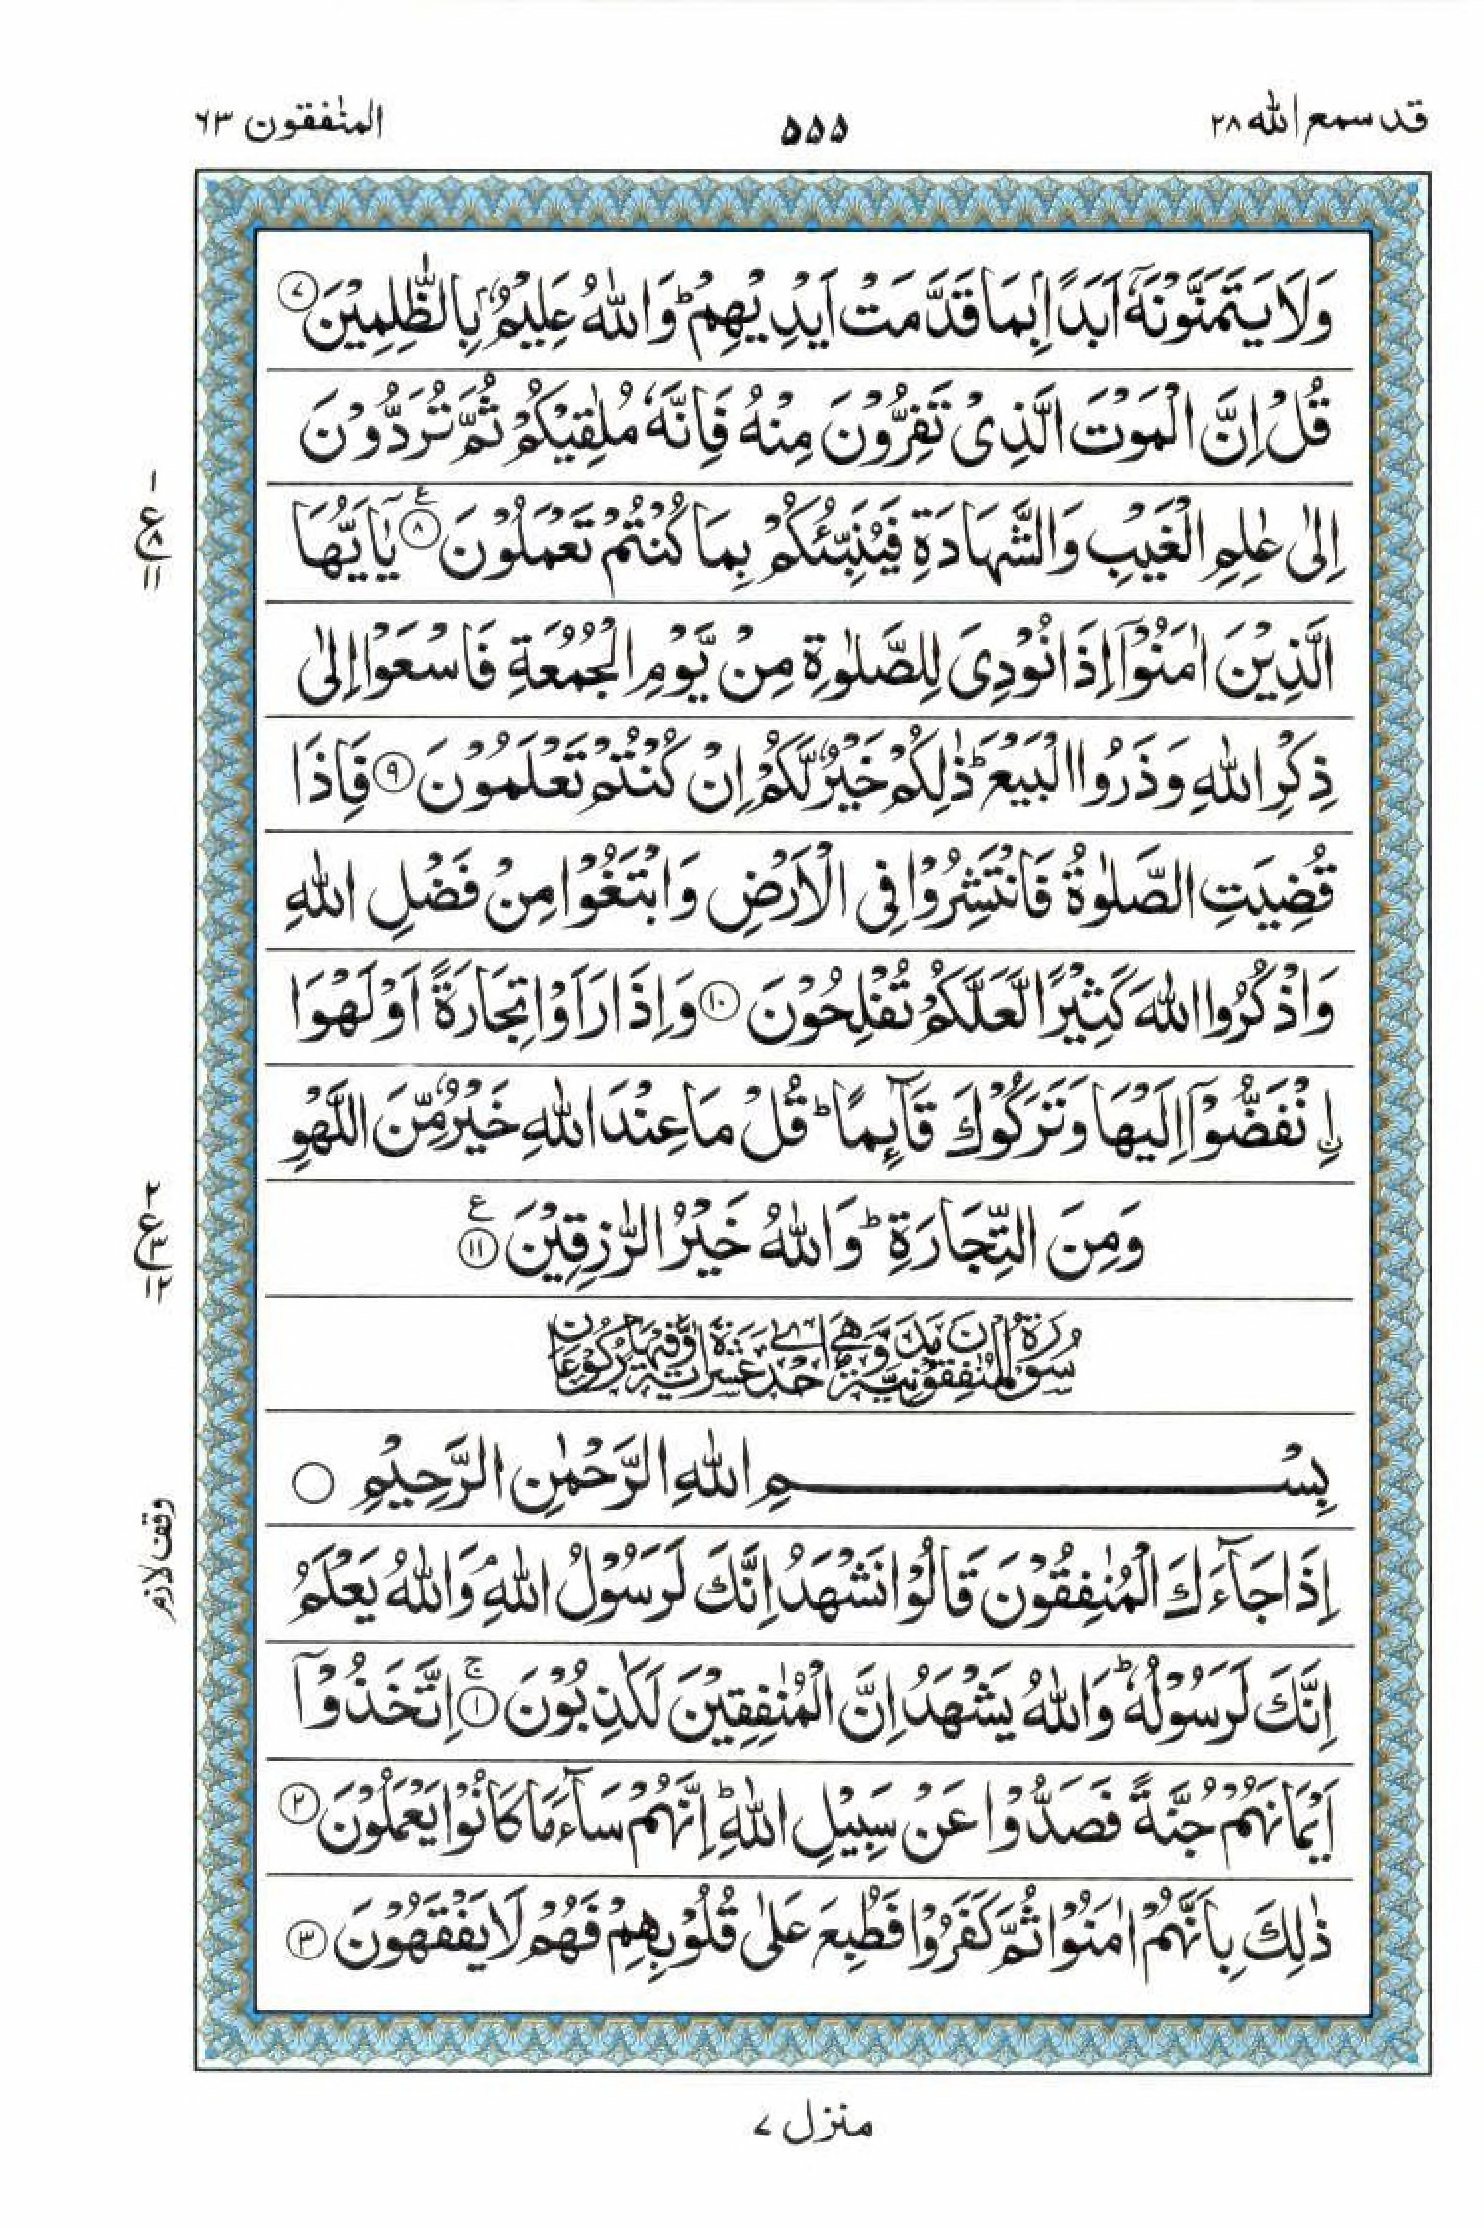 قد سمع الله ۲۸
۵۵۵
المنٰفقون ۶۳
وَلَا يَتَمَنَّوْنَهٗۤ اَبَدًۢا بِمَا قَدَّمَتْ اَيْدِيْهِمْ ؕ وَاللّٰهُ عَلِيْمٌۢ بِالظّٰلِمِيْنَ ۷
قُلْ اِنَّ الْمَوْتَ الَّذِىْ تَفِرُّوْنَ مِنْهُ فَاِنَّهٗ مُلٰقِيْكُمْ ثُمَّ تُرَدُّوْنَ
اِلٰى عٰلِمِ الْغَيْبِ وَالشَّهَادَةِ فَيُنَبِّئُكُمْ بِمَا كُنْتُمْ تَعْمَلُوْنَ ۸ ع يٰۤاَيُّهَا
۱
ع ۸
۱۱
الَّذِيْنَ اٰمَنُوْۤا اِذَا نُوْدِىَ لِلصَّلٰوةِ مِنْ يَّوْمِ الْجُمُعَةِ فَاسْعَوْا اِلٰى
ذِكْرِ اللّٰهِ وَذَرُوا الْبَيْعَ ؕ ذٰلِكُمْ خَيْرٌ لَّكُمْ اِنْ كُنْتُمْ تَعْلَمُوْنَ ۹ فَاِذَا
قُضِيَتِ الصَّلٰوةُ فَانْتَشِرُوْا فِى الْاَرْضِ وَابْتَغُوْا مِنْ فَضْلِ اللّٰهِ
وَاذْكُرُوا اللّٰهَ كَثِيْرًا لَّعَلَّكُمْ تُفْلِحُوْنَ ۱۰ وَاِذَا رَاَوْا تِجَارَةً اَوْ لَهْوَا
۟اِنْفَضُّوْۤا اِلَيْهَا وَتَرَكُوْكَ قَآئِمًا ؕ قُلْ مَا عِنْدَ اللّٰهِ خَيْرٌ مِّنَ اللَّهْوِ
وَمِنَ التِّجَارَةِ ؕ وَاللّٰهُ خَيْرُ الرّٰزِقِيْنَ ۱۱ ع
۲
ع ۳
۱۲
سُوْرَةُ الْمُنٰفِقُوْنَ مَدَنِيَّةٌ وَّهِىَ اِحْدٰى عَشَرَةَ اٰيَةً وَّفِيْهَا رُكُوْعَانِ
بِسْمِ اللّٰهِ الرَّحْمٰنِ الرَّحِيْمِ
اِذَا جَآءَكَ الْمُنٰفِقُوْنَ قَالُوْا نَشْهَدُ اِنَّكَ لَرَسُوْلُ اللّٰهِ ۘ وَاللّٰهُ يَعْلَمُ
وقف لازم
اِنَّكَ لَرَسُوْلُهٗ ؕ وَاللّٰهُ يَشْهَدُ اِنَّ الْمُنٰفِقِيْنَ لَكٰذِبُوْنَ ۱ ۚ اِتَّخَذُوْۤا
اَيْمَانَهُمْ جُنَّةً فَصَدُّوْا عَنْ سَبِيْلِ اللّٰهِ ؕ اِنَّهُمْ سَآءَ مَا كَانُوْا يَعْمَلُوْنَ ۲
ذٰلِكَ بِاَنَّهُمْ اٰمَنُوْا ثُمَّ كَفَرُوْا فَطُبِعَ عَلٰى قُلُوْبِهِمْ فَهُمْ لَا يَفْقَهُوْنَ ۳
منزل ۷